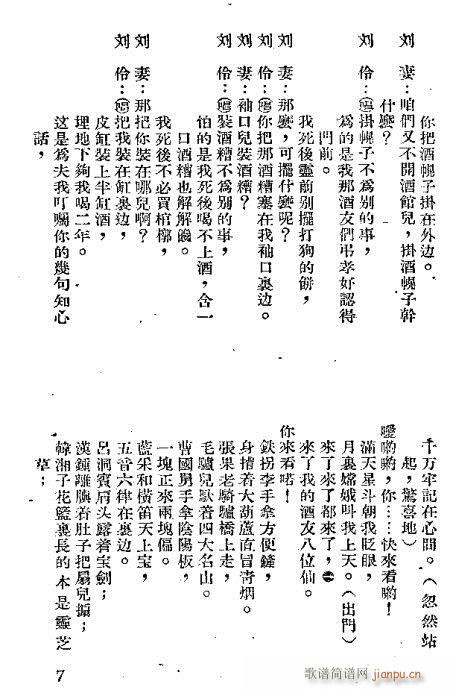 你把酒幌子掛在外边。
刘 妻：咱們又不開酒館兒，掛酒幌子幹
什麽？
刘 伶：掛幌子不爲别的事，
爲的是我那酒友們弔孝好認得
門前。
我死後靈前别擺打狗的餅，
刘 妻：那麽，可擺什麽呢？
刘 伶：你把那酒糟塞在我袖口裏边。
刘 妻：袖口兒裝酒糟？
刘 伶：裝酒糟不爲别的事，
怕的是我死後喝不上酒，含一
口酒糟也解解饞。
我死後不必買棺槨，
刘 妻：那把你裝在哪兒啊？
刘 伶：把我裝在缸裏边，
皮缸裝上半缸酒，
埋地下夠我喝二年。
这是爲夫我叮囑你的幾句知心
話，
千万牢記在心間。（忽然站
起，驚喜地）
噯喲喲，你……快來看喲！
滿天星斗朝我眨眼，
月裏嫦娥叫我上天。（出門）
來了來了都來了，
來了我的酒友八位仙。
你來看喏！
鉄拐李手拿方便鏟，
身揹着大葫蘆直冒青烟。
張果老騎驢橋上走，
毛驢兒馱着四大名山。
曹國舅手拿陰陽板，
一塊正來兩塊偏。
藍采和橫笛天上宝，
五音六律在裏边。
呂洞賓肩头露着宝劍；
漢鍾離腆着肚子把扇兒搧；
韓湘子花籃裏長的本是靈芝
草；
7
歌谱简谱网
jianpu.cn